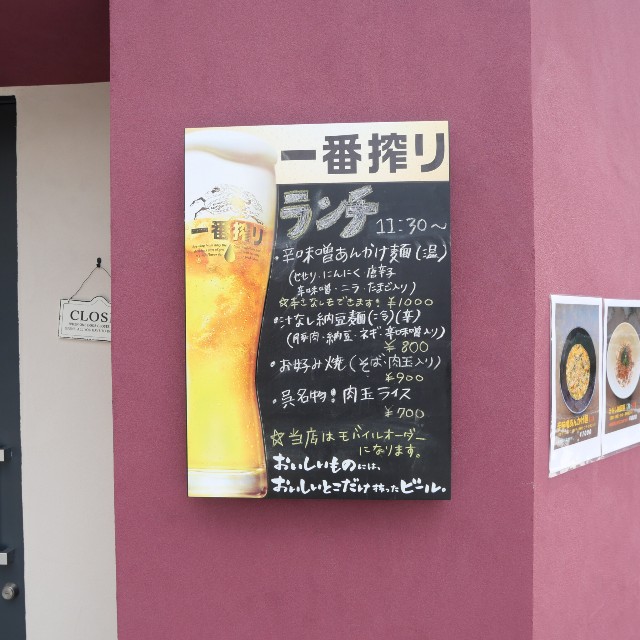 一番搾り
ランチ 11:30〜
・辛味噌あんかけ麺(温)
(セセリ・にんにく 唐辛子
辛味噌・ニラ・たまご入り)
☆辛さなしもできます! ¥1000
・汁なし納豆麺(冷)(辛)
(豚肉・納豆・ネギ・辛味噌入り)
¥800
・お好み焼(そば・肉玉入り)
¥900
・呉名物!肉玉ライス
¥700
☆当店はモバイルオーダー
になります。
おいしいものには、
おいしいとこだけ搾ったビール。
一番搾り
CLOS